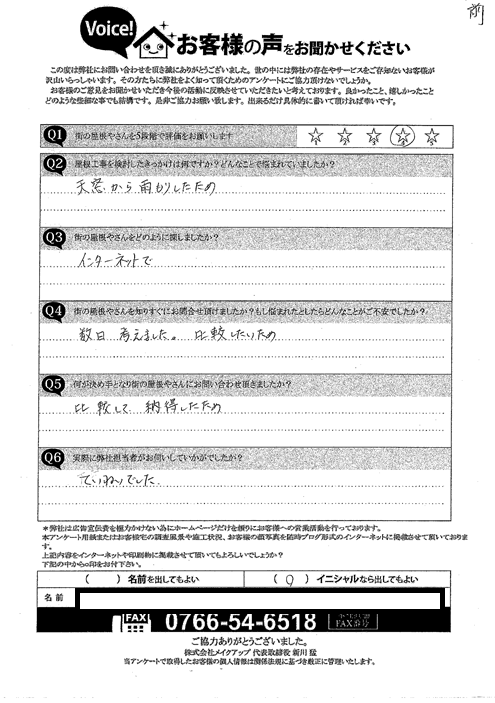 前
Voice!
お客様の声をお聞かせください
この度は弊社にお問い合わせを頂き誠にありがとうございました。世の中には弊社の存在やサービスをご存知ないお客様が
沢山いらっしゃいます。その方たちに弊社をよく知って頂くためのアンケートにご協力頂けないでしょうか。
お客様のご意見をお聞かせいただき今後の活動に反映させていただきたいと考えております。良かったこと、嬉しかったこと
どのような些細な事でも結構です。是非ご協力お願い致します。出来るだけ具体的に書いて頂ければ幸いです。
Q1 街の屋根やさんを5段階で評価をお願いします
Q2 屋根工事を検討したきっかけは何ですか?どんなことで悩まれていましたか?
天窓から雨もりしたため
Q3 街の屋根やさんをどのように探しましたか?
インターネットで
Q4 街の屋根やさんを知りすぐにお問合せ頂けましたか?もし悩まれたとしたらどんなことがご不安でしたか?
数日 考えました。比較したいため
Q5 何が決め手となり街の屋根やさんにお問い合わせ頂きましたか?
比較して 納得したため
Q6 実際に弊社担当者がお伺いしていかがでしたか?
ていねいでした
*弊社は広告宣伝費を極力かけない為にホームページだけを頼りにお客様への営業活動を行っております。
本アンケート用紙またはお客様宅の調査風景や施工状況、お客様の顔写真を随時ブログ形式のインターネットに掲載させて頂いておりま
す。
上記内容をインターネットや印刷物に掲載させて頂いてもよろしいでしょうか?
下記の中から○印をお付下さい。
( ) 名前を出してもよい ( ○ ) イニシャルなら出してもよい
名前
FAX 0766-54-6518
ご協力ありがとうございました。
株式会社メイクアップ 代表取締役 新川 猛
当アンケートで取得したお客様の個人情報は関係法規に基づき厳正に管理いたします。